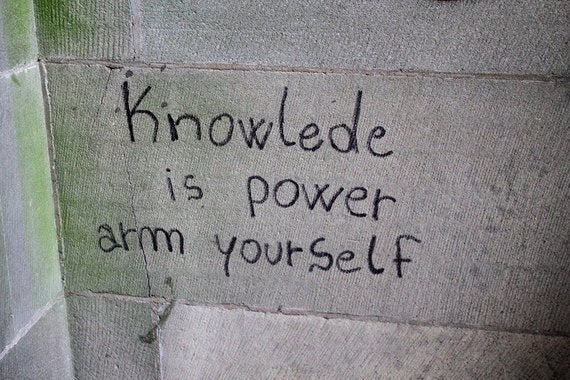 Knowlede
is power
arm yourself